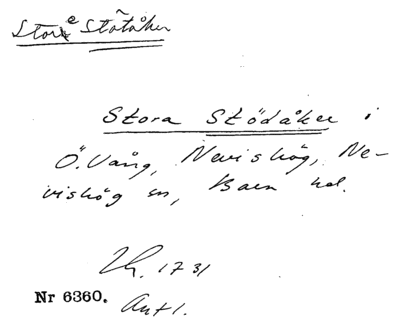 Store Stötåker
Stora Stödåker i
Ö. Vång, Nevishög, Ne-
vishög sn, Bara hd.
Lh. 1731
Nr 6360. Avt 1.